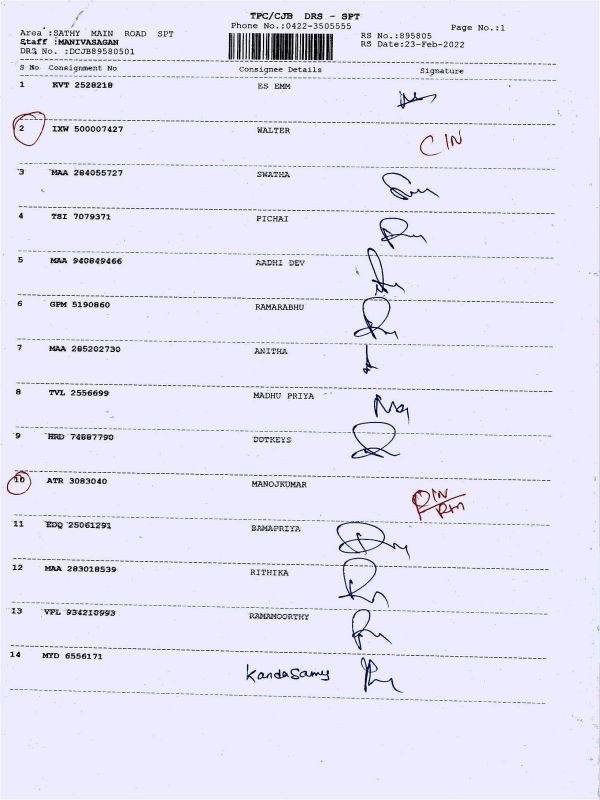 TPC/CJB DRS - SPT
Phone No.:0422-3505555
Page No.:1
Area :SATHY MAIN ROAD SPT
RS No.:895805
Staff :MANIVASAGAN
RS Date:23-Feb-2022
DRS No. :DCJB89580501
S No Consignment No Consignee Details Signature
1 KVT 2528218 ES EMM
2 IXW 500007427 WALTER CIN
3 MAA 284055727 SWATHA
4 TSI 7079371 PICHAI
5 MAA 940849466 AADHI DEV
6 GPM 5190860 RAMARABHU
7 MAA 285202730 ANITHA
8 TVL 2556699 MADHU PRIYA
9 HRD 74887790 DOTKEYS
10 ATR 3083040 MANOJKUMAR
11 EDQ 25061291 BAMAPRIYA
12 MAA 283018539 RITHIKA
13 VPL 934210993 RAMAMOORTHY
14 MYD 6556171 Kandasamy